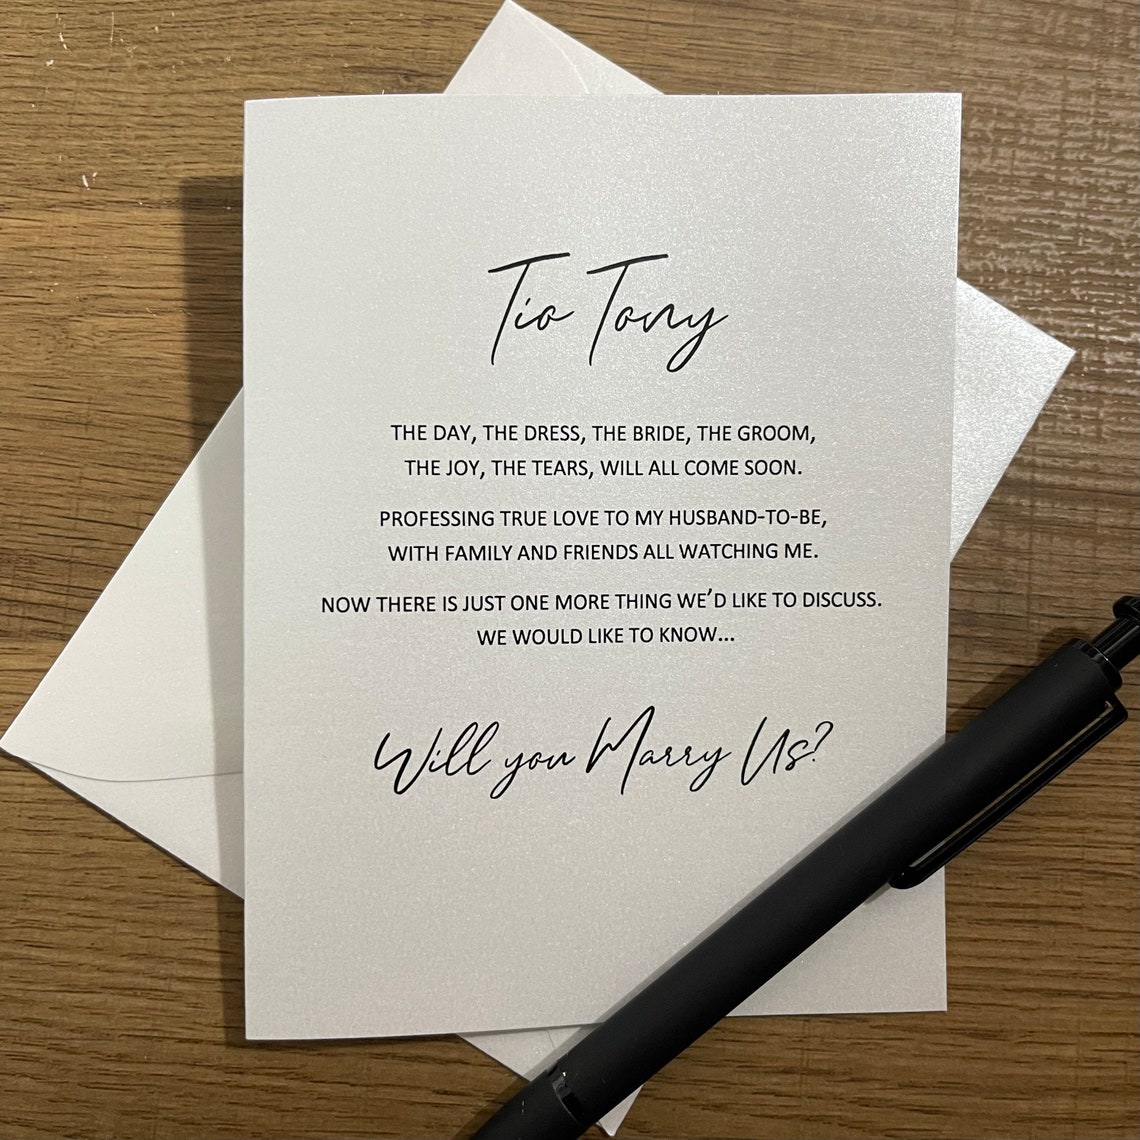 Tio Tony
THE DAY, THE DRESS, THE BRIDE, THE GROOM,
THE JOY, THE TEARS, WILL ALL COME SOON.
PROFESSING TRUE LOVE TO MY HUSBAND-TO-BE,
WITH FAMILY AND FRIENDS ALL WATCHING ME.
NOW THERE IS JUST ONE MORE THING WE'D LIKE TO DISCUSS.
WE WOULD LIKE TO KNOW...
Will you Marry Us?